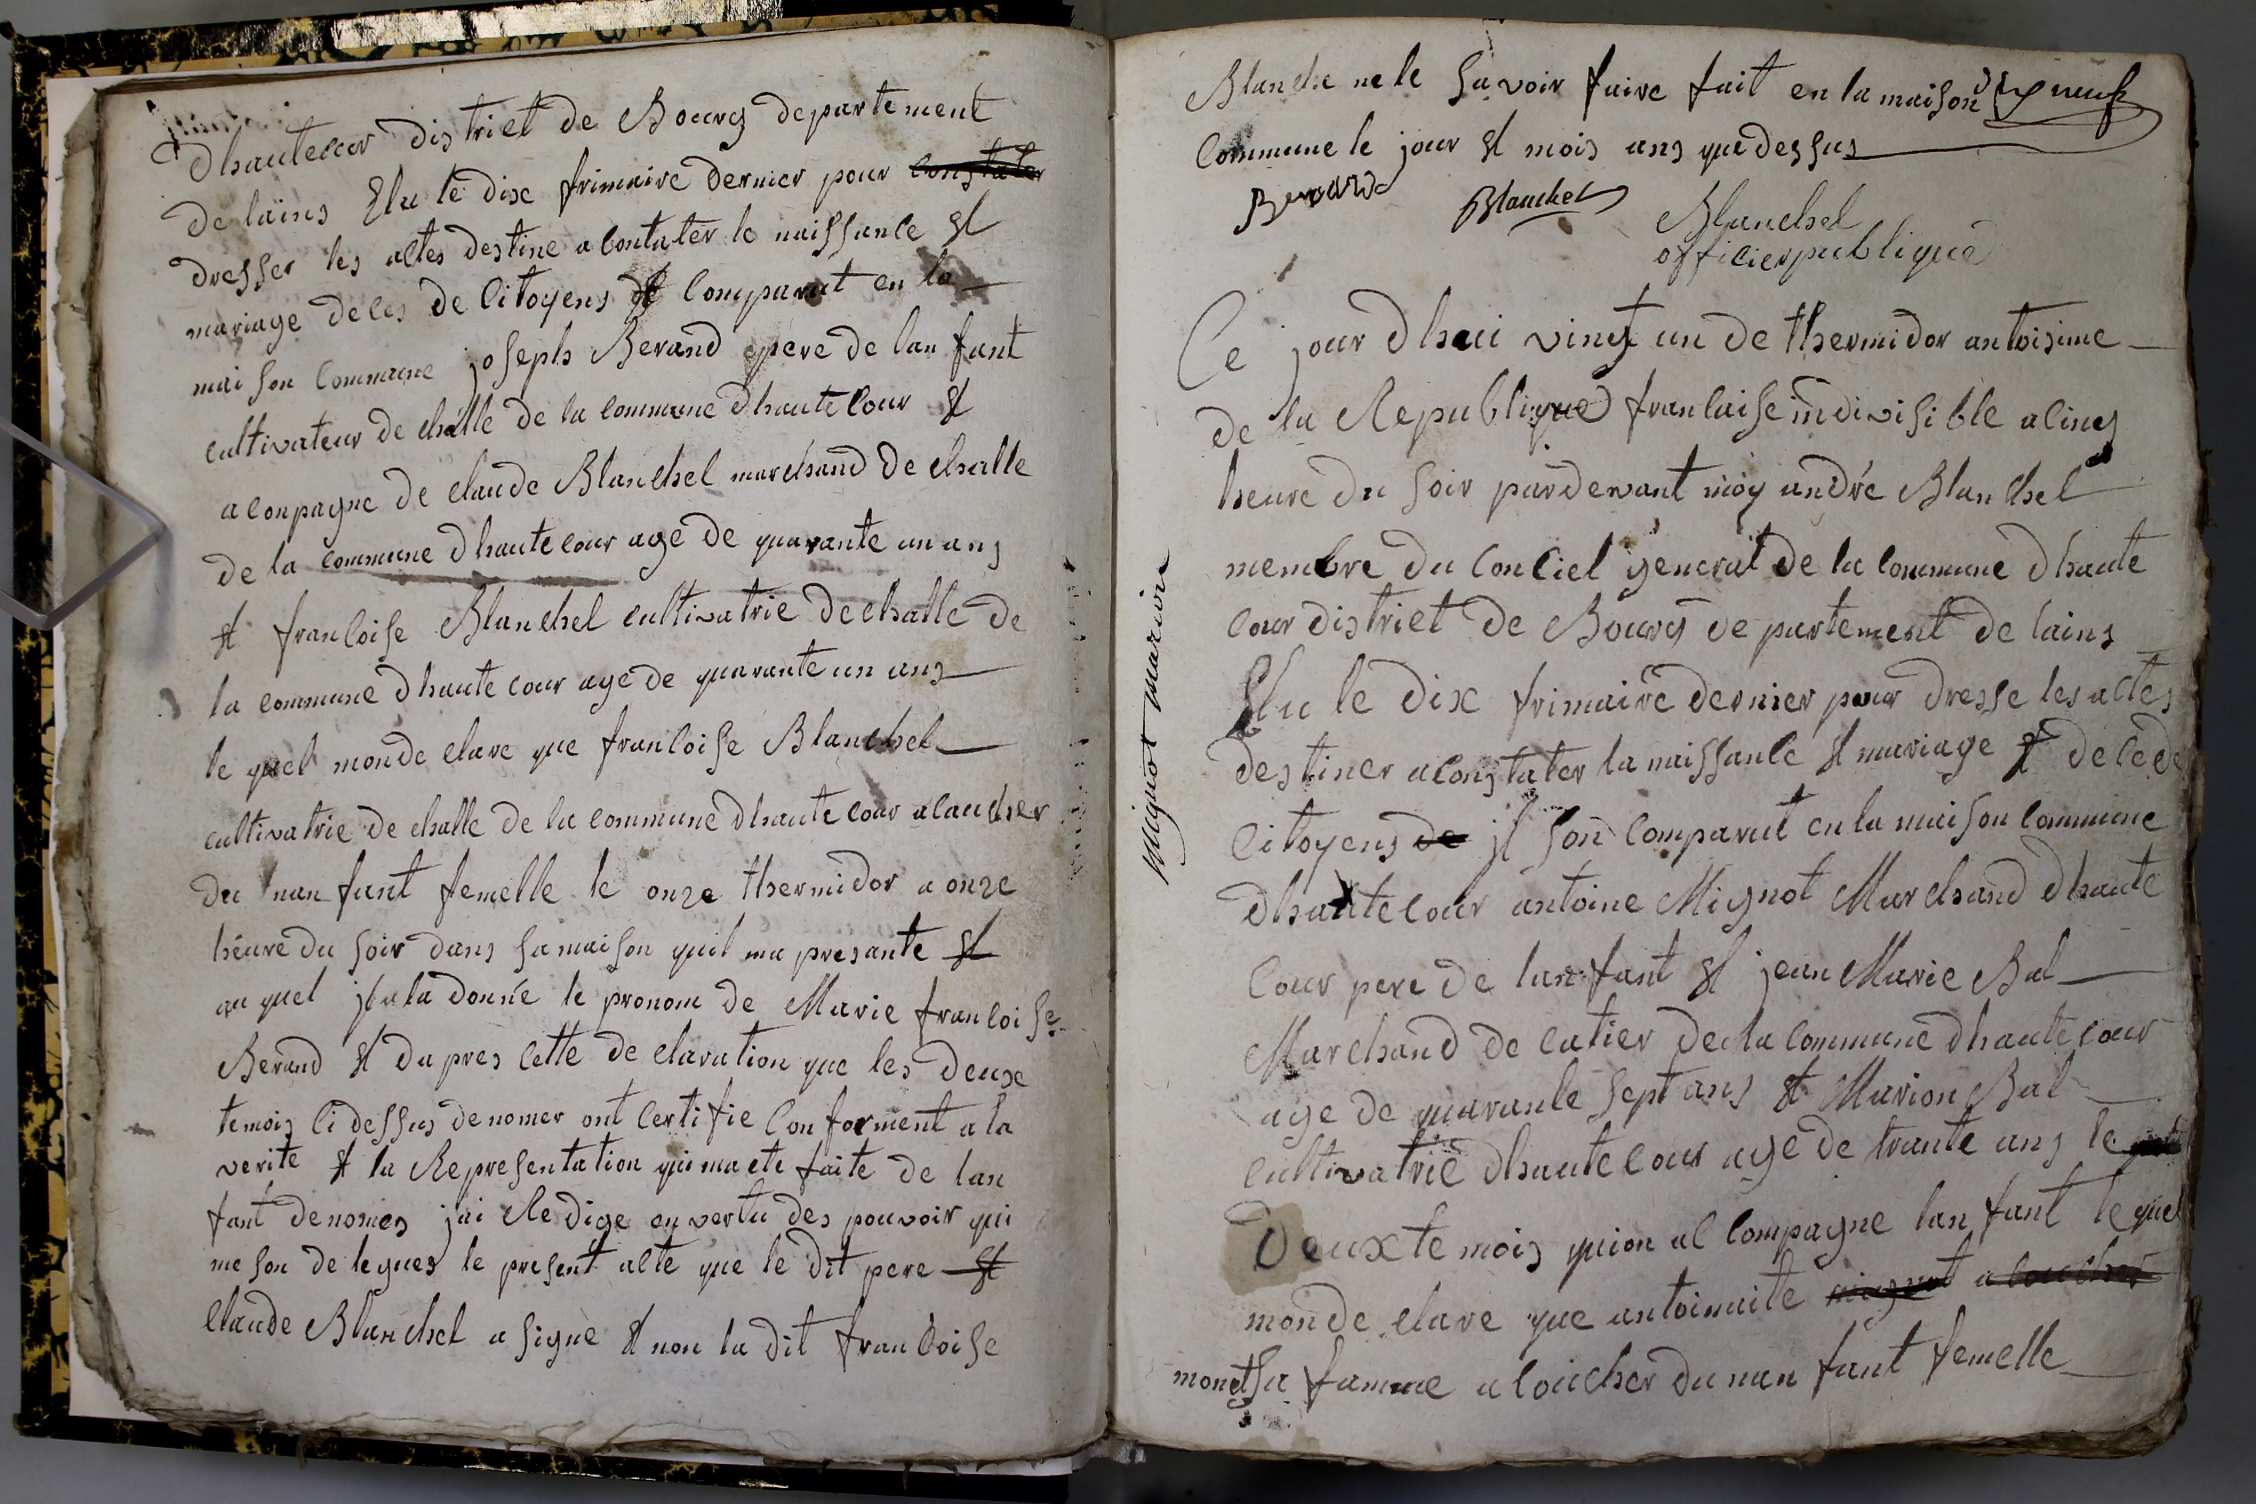 dhautecour district de Bourg departement
de lains Elu le dix frimaire dernier pour constater
dresser les actes destine a contater le naissance et
mariage deces de Citoyens et Comparut en la
maison Commune joseph Berand pere de lan fant
cultivateur de challe de la commune dhautecour et
acompagne de claude Blanchel marchand de challe
de la commune dhautecour age de quarante un ans
et francoise Blanchel cultivatrie de challe de
la commune dhautecour age de quarante un ans
le quel monde clare que francoise Blanchel
cultivatrie de challe de la commune dhautecour a caucher
du nan fant femelle le onze thermidor a onze
heure du soir dans sa maison quil ma presante et
au quel jl a la donné le pronom de Marie francoise
Berand et dupres cette de claration que les deuxe
temois ci dessus denomer ont certifie Conforment a la
verite et la Representation qui ma ete faite de lan
fant denomes jai Redige en vertu des pouvoir qui
me son delegues le present acte que le dit pere et
Claude Blanchel a signe et non la dit francoise
Blanche ne le savoir faire fait en la maison
Commune le jour et mois ans que dessus
Berand Blanchel Blanchel
officier publique
Mignot marion
Ce jour dhui vingt un de thermidor antoisime
de la Republique francaise indivisible a cinq
heure du soir pardevant moy andre Blanchel
membre du conciel general de la commune dhaute
cour district de Bourg departement de lains
Elu le dix frimaire dernier pour dresse les actes
destiner a constater la naissance et mariage et decede
Citoyens de jl son comparut en la maison commune
dhautecour antoine Mignot Marchand dhaute
Cour pere de lan fant et jean Marie Bal
Marchand de cutier de la commune dhautecour
age de quarante sept ans et Marion Bal
cultivatrie dhautecour age de trante ans le
Deux temois quion accompagne lan fant le quel
monde clare que antoinaite mignot a coucher
monet sa famme a coucher du nan fant femelle